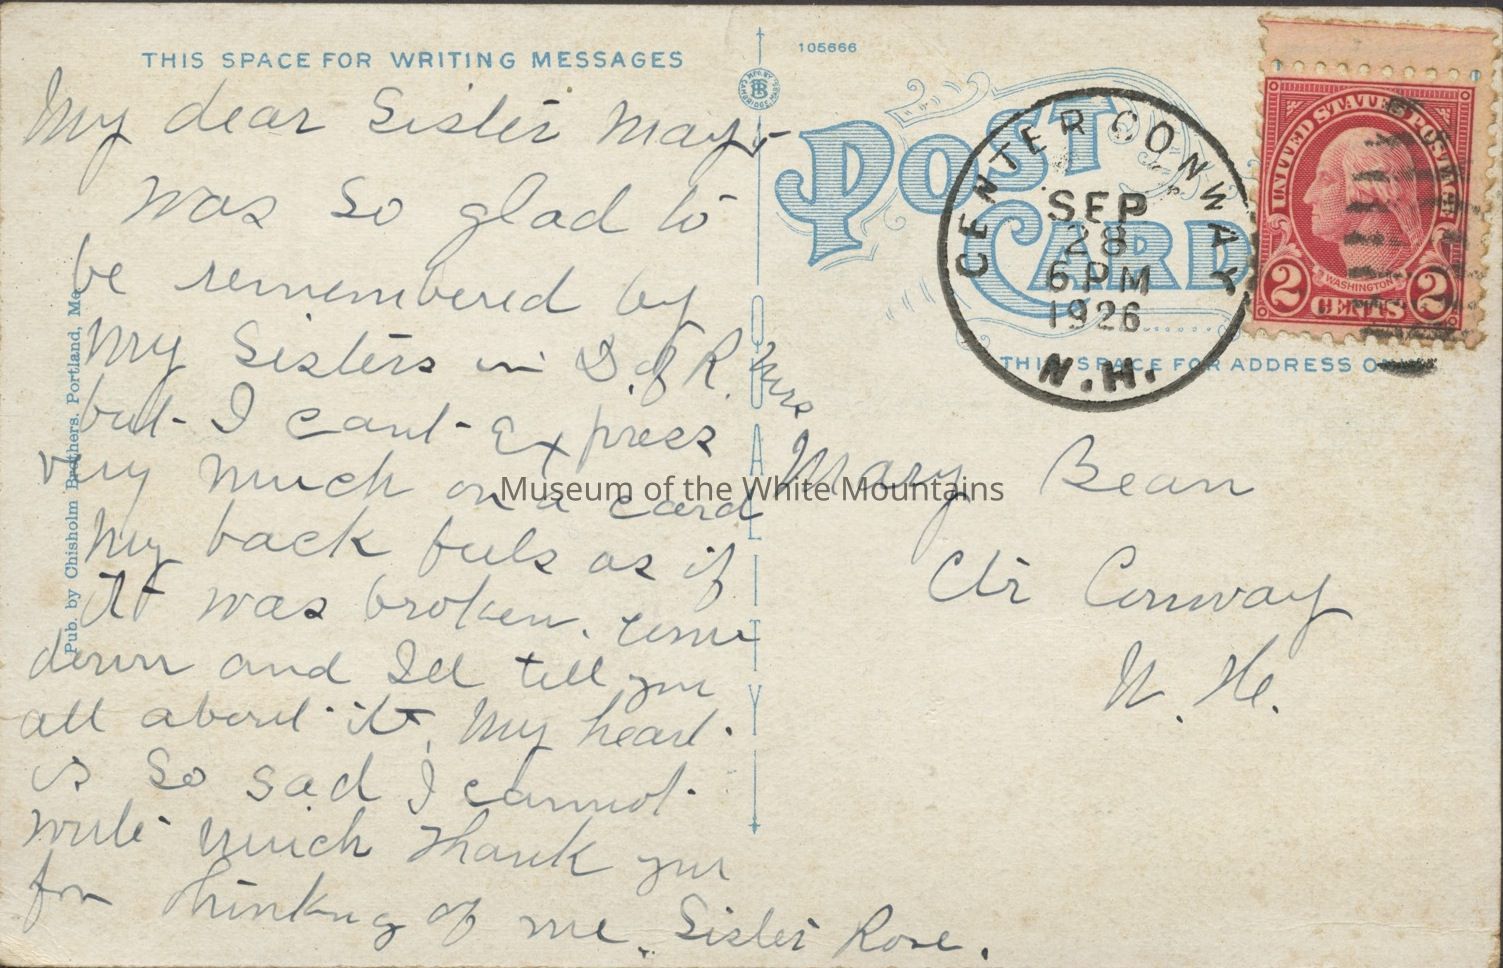 THIS SPACE FOR WRITING MESSAGES
My dear Sister Mary
was so glad to
be remembered by
My Sisters in D. of R.
but I cant Express
very much on a card
My back feels as if
It was broken. come
down and Ill tell you
all about it, My heart
is so sad I cannot
write much Thank you
for thinking of me. Sister Rose.
Pub. by Chisholm Brothers, Portland, Me.
MF'D. BY
TB
CAMBRIDGE, MASS.
QUALITY
105666
POST
CARD
CENTER CONWAY
SEP
28
6 PM
1926
N.H.
UNITED STATES POSTAGE
WASHINGTON
2 CENTS 2
THIS SPACE FOR ADDRESS ONLY
Mrs
Mary Bean
Ctr Conway
N. H.
Museum of the White Mountains